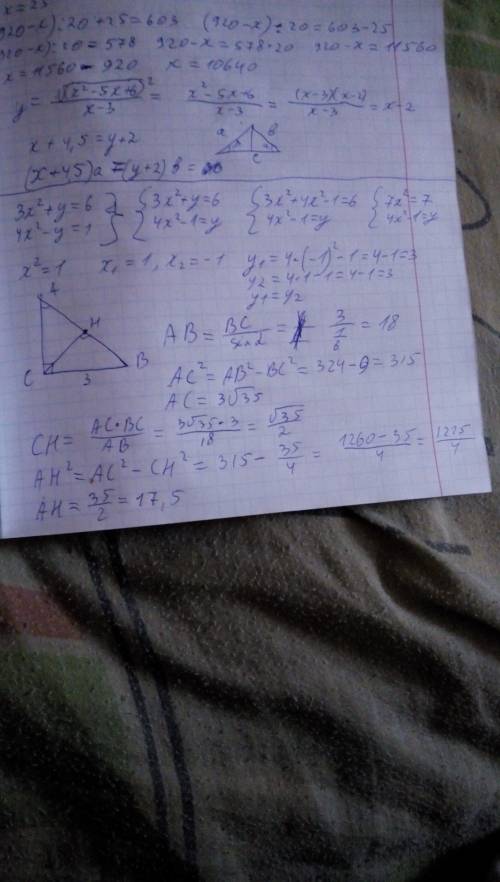 x=25
920-x):20+25=603 (920-x):20=603-25
920-x):20=578 920-x=578·20 920-x=11560
x=11560-920 x=10640
y=(√(x²-5x+6))²/(x-3)=(x²-5x+6)/(x-3)=((x-3)(x-2))/(x-3)=x-2
x+4,5=y+2
a b
c
(x+4,5)a=(y+2)b=
3x²+y=6 {3x²+y=6 {3x²+4x²-1=6 {7x²=7
4x²-y=1 {4x²-1=y {4x²-1=y {4x²-1=y
x²=1 x₁=1, x₂=-1 y₁=4·(-1)²-1=4-1=3
y₂=4·1-1=4-1=3
y₁=y₂
A
H
C 3 B
AB=BC/sin α= 3/(1/6)=18
AC²=AB²-BC²=324-9=315
AC=3√35
CH=AC·BC/AB=3√35·3/18=√35/2
AH²=AC²-CH²=315-35/4=(1260-35)/4=1225/4
AH=35/2=17,5